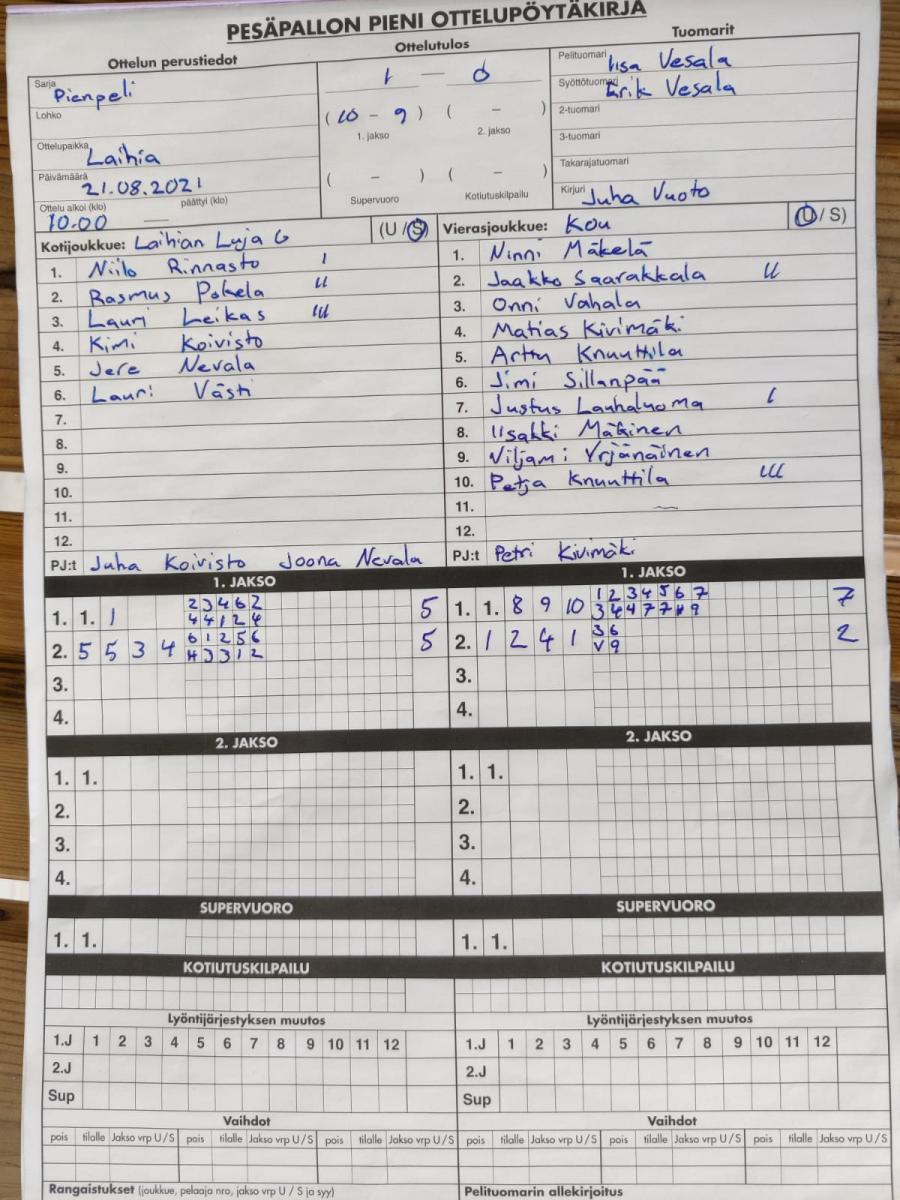 PESÄPALLON PIENI OTTELUPÖYTÄKIRJA
Ottelun perustiedot Ottelutulos Tuomarit
Sarja Pienpeli
Lohko
Ottelupaikka Laihia
Päivämäärä 21.08.2021
Ottelu alkoi (klo) päättyi (klo)
10.00 —
1 – 0
(10 - 9) ( - )
1. jakso 2. jakso
( - ) ( - )
Supervuoro Kotiutuskilpailu
Pelituomari Iisa Vesala
Syöttötuomari Erik Vesala
2-tuomari
3-tuomari
Takarajatuomari
Kirjuri Juha Vuoto
Kotijoukkue: Laihian Luja G (U / S)
1. Niilo Rinnasto I
2. Rasmus Pokela II
3. Lauri Leikas III
4. Kimi Koivisto
5. Jere Nevala
6. Lauri Västi
7.
8.
9.
10.
11.
12.
PJ:t Juha Koivisto Joona Nevala
Vierasjoukkue: Kou (U / S)
1. Ninni Mäkelä
2. Jaakko Saarakkala II
3. Onni Vahala
4. Matias Kivimäki
5. Arttu Knuuttila
6. Jimi Sillanpää
7. Justus Lauhaluoma I
8. Iisakki Mäkinen
9. Viljami Yrjänäinen
10. Petja Knuuttila III
11.
12.
PJ:t Petri Kivimäki
1. JAKSO
1. 1. 1 2 3 4 6 2 5
4 4 1 2 4
2. 5 5 3 4 6 1 2 5 6 5
H 3 3 1 2
3.
4.
1. JAKSO
1. 1. 8 9 10 1 2 3 4 5 6 7 7
3 4 4 7 7 H 9
2. 1 2 4 1 3 6 2
V 9
3.
4.
2. JAKSO
1. 1.
2.
3.
4.
2. JAKSO
1. 1.
2.
3.
4.
SUPERVUORO SUPERVUORO
1. 1. 1. 1.
KOTIUTUSKILPAILU KOTIUTUSKILPAILU
Lyöntijärjestyksen muutos Lyöntijärjestyksen muutos
1.J 1 2 3 4 5 6 7 8 9 10 11 12 1.J 1 2 3 4 5 6 7 8 9 10 11 12
2.J 2.J
Sup Sup
Vaihdot Vaihdot
pois tilalle Jakso vrp U / S pois tilalle Jakso vrp U / S pois tilalle Jakso vrp U / S pois tilalle Jakso vrp U / S pois tilalle Jakso vrp U / S pois tilalle Jakso vrp U / S
Rangaistukset (joukkue, pelaaja nro, jakso vrp U / S ja syy) Pelituomarin allekirjoitus